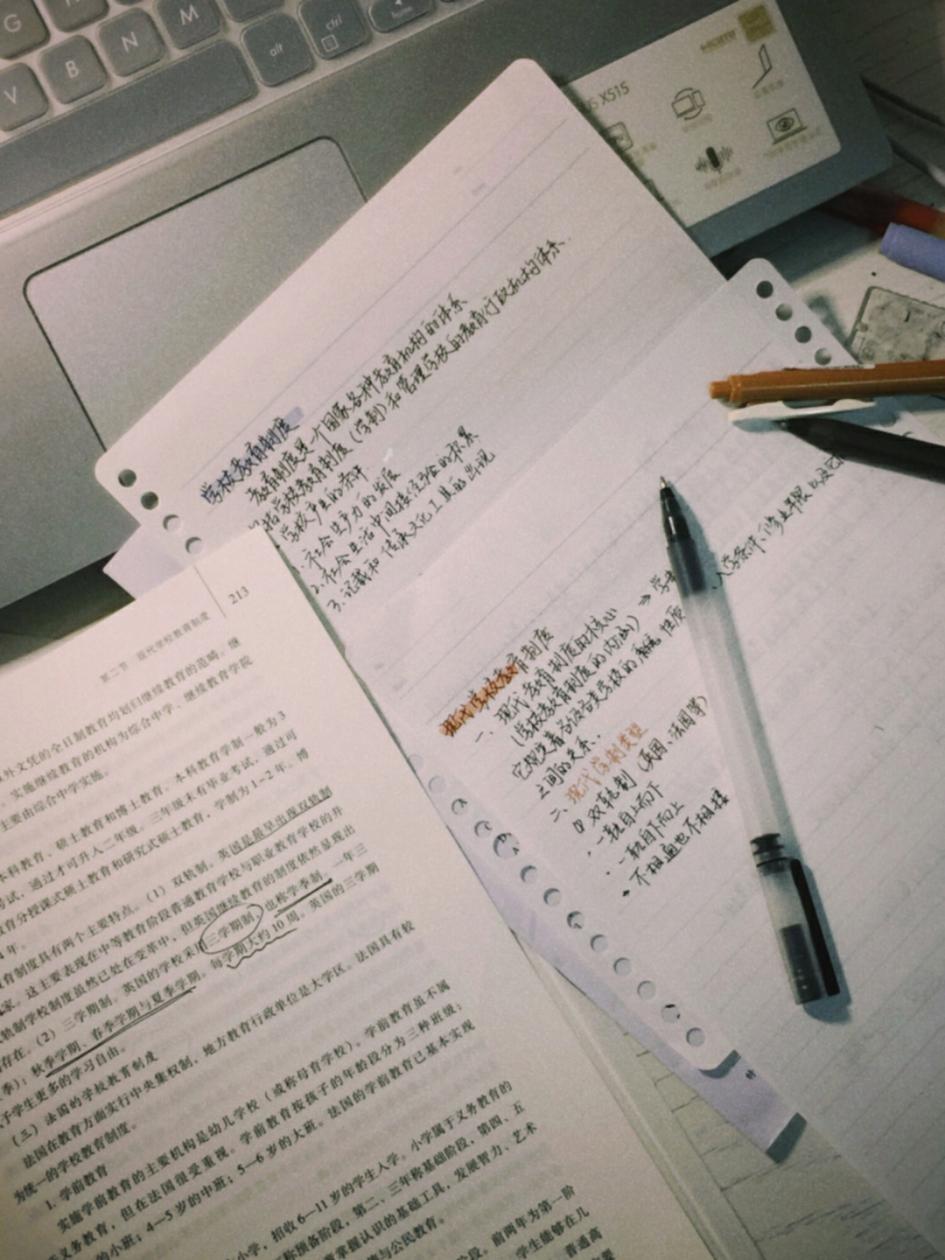 G
V
B
N
M
alt
ctrl
X515
HDMI
学校教育制度
教育制度是一个国家各种教育机构的体系
指学校教育制度（学制）和管理学校的教育行政机构体系
学校产生的条件
社会生产力的发展
2.社会生活中间接经验的积累
3.记载和传承文化工具的出现
现代学校教育制度
一、现代教育制度的核心
（学校教育制度的内涵）→
它规定着各级各类学校的
入学条件、修业年限以及它
之间的关系.
二、现代学制类型
① 双轨制（英国、法国等）
·一轨自上而下
·一轨自下而上
·不相通也不相接
213
第二节 现代学校教育制度
外文凭的全日制教育均划归继续教育的范畴，继
实施继续教育的机构为综合中学、继续教育学院
主要由综合中学实施。
本科教育、硕士教育和博士教育。本科教育学制一般为3
考试，通过才可升入二年级。三年级末有毕业考试，通过可
育分授课式硕士教育和研究式硕士教育，学制为1~2年。博
年。
育制度具有两个主要特点。（1）双轨制。英国是最早出现双轨制
家。这主要表现在中等教育阶段普通教育学校与职业教育学校的并
轨制学校制度虽然已处在变革中，但英国继续教育的制度依然显现出
存在。（2）三学期制。英国的学校采用三学期制，也称学季制，一年三
季）：秋季学期、春季学期与夏季学期。每学期大约10周。英国的三学期
予学生更多的学习自由。
（三）法国的学校教育制度
法国在教育方面实行中央集权制，地方教育行政单位是大学区。法国具有较
为统一的学校教育制度。
1. 学前教育
实施学前教育的主要机构是幼儿学校（或称母育学校）。学前教育虽不属
于义务教育，但在法国很受重视。学前教育按孩子的年龄段分为三种班级：
的小班；4—5岁的中班；5—6岁的大班。法国的学前教育已基本实现
小学，招收6—11岁的学生入学。小学属于义务教育的
称预备阶段，第二、三年称基础阶段，第四、五
要掌握认识的基础工具，发展智力、艺术
与公民教育。
阶段。前两年为第一阶
学生能够在几
普通高